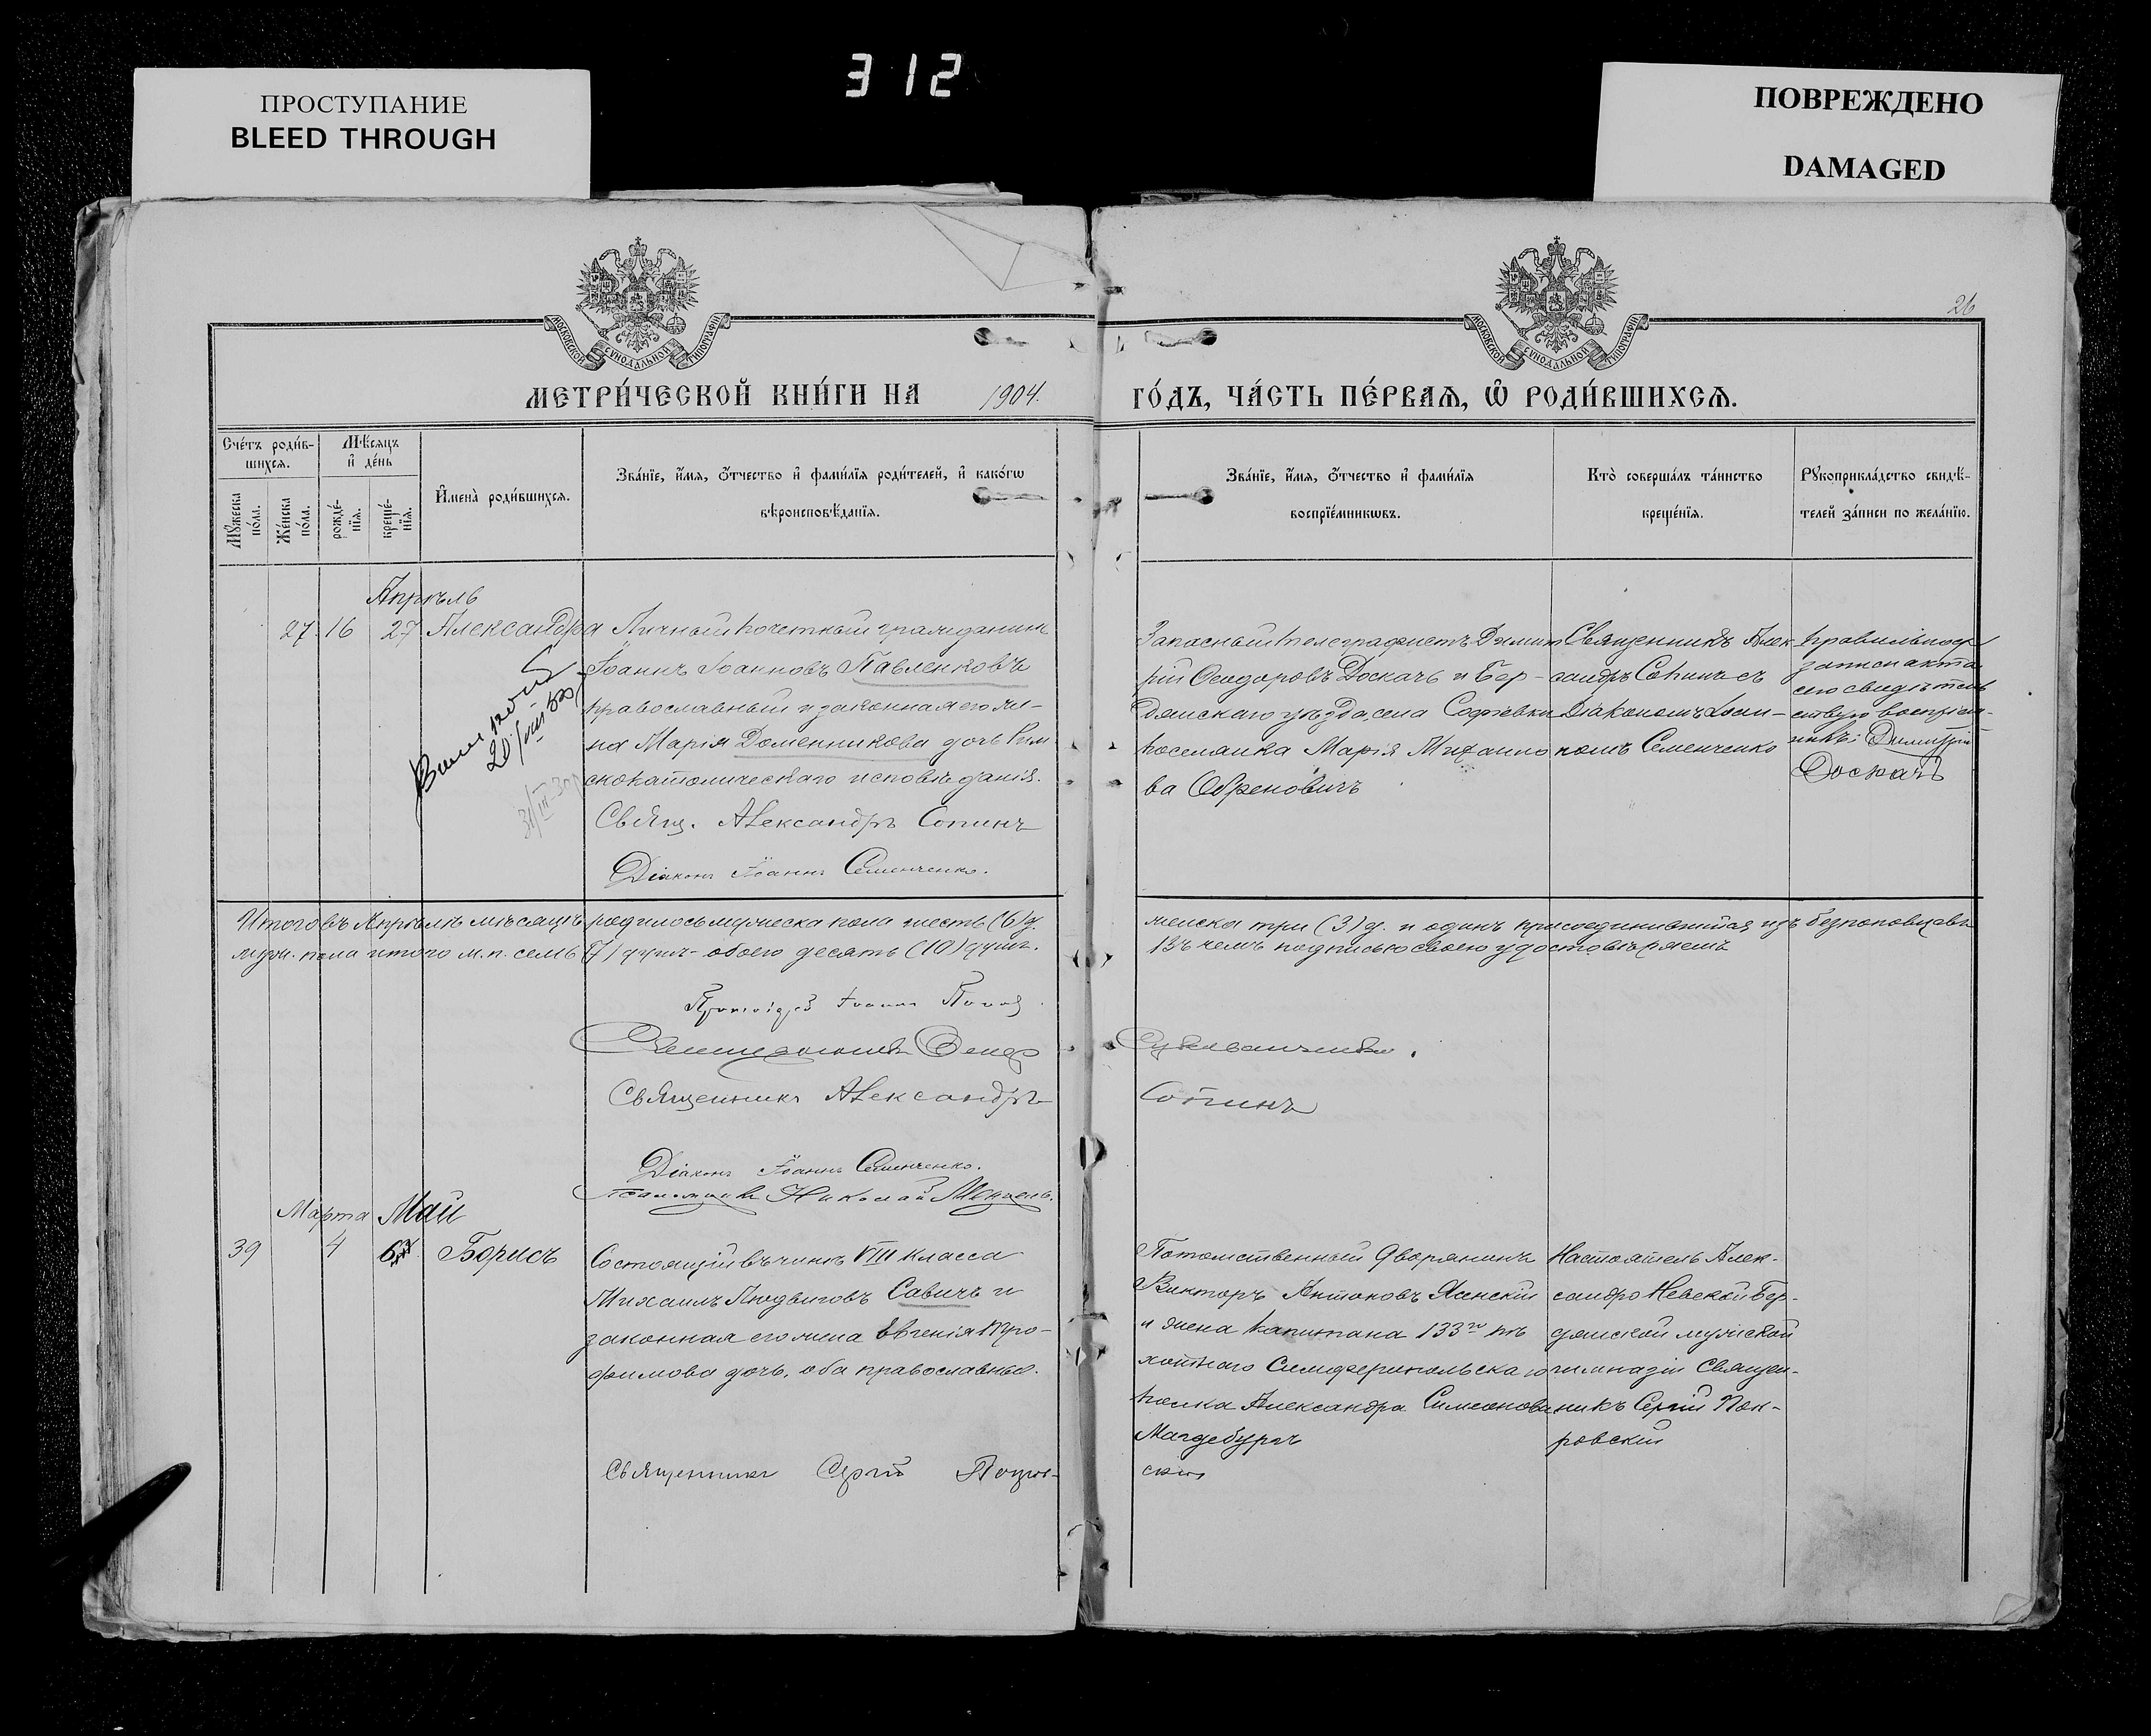 312
ПРОСТУПАНИЕ
BLEED THROUGH
ПОВРЕЖДЕНО
DAMAGED
МОСКОВСКОЙ СѴНОДАЛЬНОЙ ТИПОГРАФІИ
МОСКОВСКОЙ СѴНОДАЛЬНОЙ ТИПОГРАФІИ
26
МЕТРИ́ЧЕСКОЙ КНИ́ГИ НА 1904. ГО́ДЪ, ЧА́СТЬ ПЕ́РВАѦ, Ѡ҆ РОДИ́ВШИХСѦ.
Сче́тъ роди́в-
шихсѧ.
Мѣ́сѧцъ
и҆ де́нь
Мꙋ́жеска
по́ла.
Же́нска
по́ла.
рожде́-
нїѧ.
креще́-
нїѧ.
И҆мена̀ роди́вшихсѧ.
Зва́нїе, и҆́мѧ, ѻ҆́тчество и҆ фами́лїѧ роди́телей, и҆ како́гѡ
вѣроисповѣ́данїѧ.
Зва́нїе, и҆́мѧ, ѻ҆́тчество и҆ фами́лїѧ
воспрїе́мникѡвъ.
Кто̀ соверша́лъ та́инство
креще́нїѧ.
Рꙋкоприкла́дство свидѣ́-
телей за́писи по жела́нїю.
Апрѣль
27 16 27 Александра
Личный почетный гражданинъ
Іоаннъ Іоанновъ Павленковъ
православный и законная его же-
на Марія Доменикова дочь Рим
скокатолическаго исповѣданія.
Свящ. Александръ Сопинъ
Діаконъ Іоаннъ Семенченко.
20/VIII 50
31/III-30
Запасный телеграфистъ Димит
рій Ѳеодоровъ Доскачъ и Бер-
дянскаго уѣзда, села Софіевки
поселянка Марія Михаило
ва Обреновичъ
Священникъ Алек
сандръ Сопинъ съ
Діакономъ Іоан-
номъ Семенченко
записи акта
сего свидѣтель
ствую воспріем-
никъ: Димитрій
Доскачъ
Итого въ Апрѣлѣ мѣсяцѣ родилось мужеска пола шесть (6) д.
муж. пола итого м.п. семь (7) душъ - обоего десять (10) душъ.
женска три (3) д. и одинъ присоединившійся изъ безпоповцевъ
въ чемъ подписью своею удостовѣряемъ
Протоіерей Іоаннъ
Священникъ Александръ Сопинъ
Діаконъ Іоаннъ Семенченко.
Псаломщикъ Николай
Марта Май
39 4 6 Борисъ
Состоящій въ чинѣ VIII класса
Михаилъ Людвиговъ Савичъ и
законная его жена Евгенія Тро-
фимова дочь. оба православные.
Священникъ Сергій Покров-
скій
Потомственный дворянинъ
Викторъ Антоновъ Яменскій
и жена капитана 133го пѣ
хотнаго Симферопольскаго
полка Александра Симеонова
Магдебургъ
Настоятель Алек-
сандро Невской Бер-
дянской мужской
гимназіи Священ-
никъ Сергій Пок-
ровскій